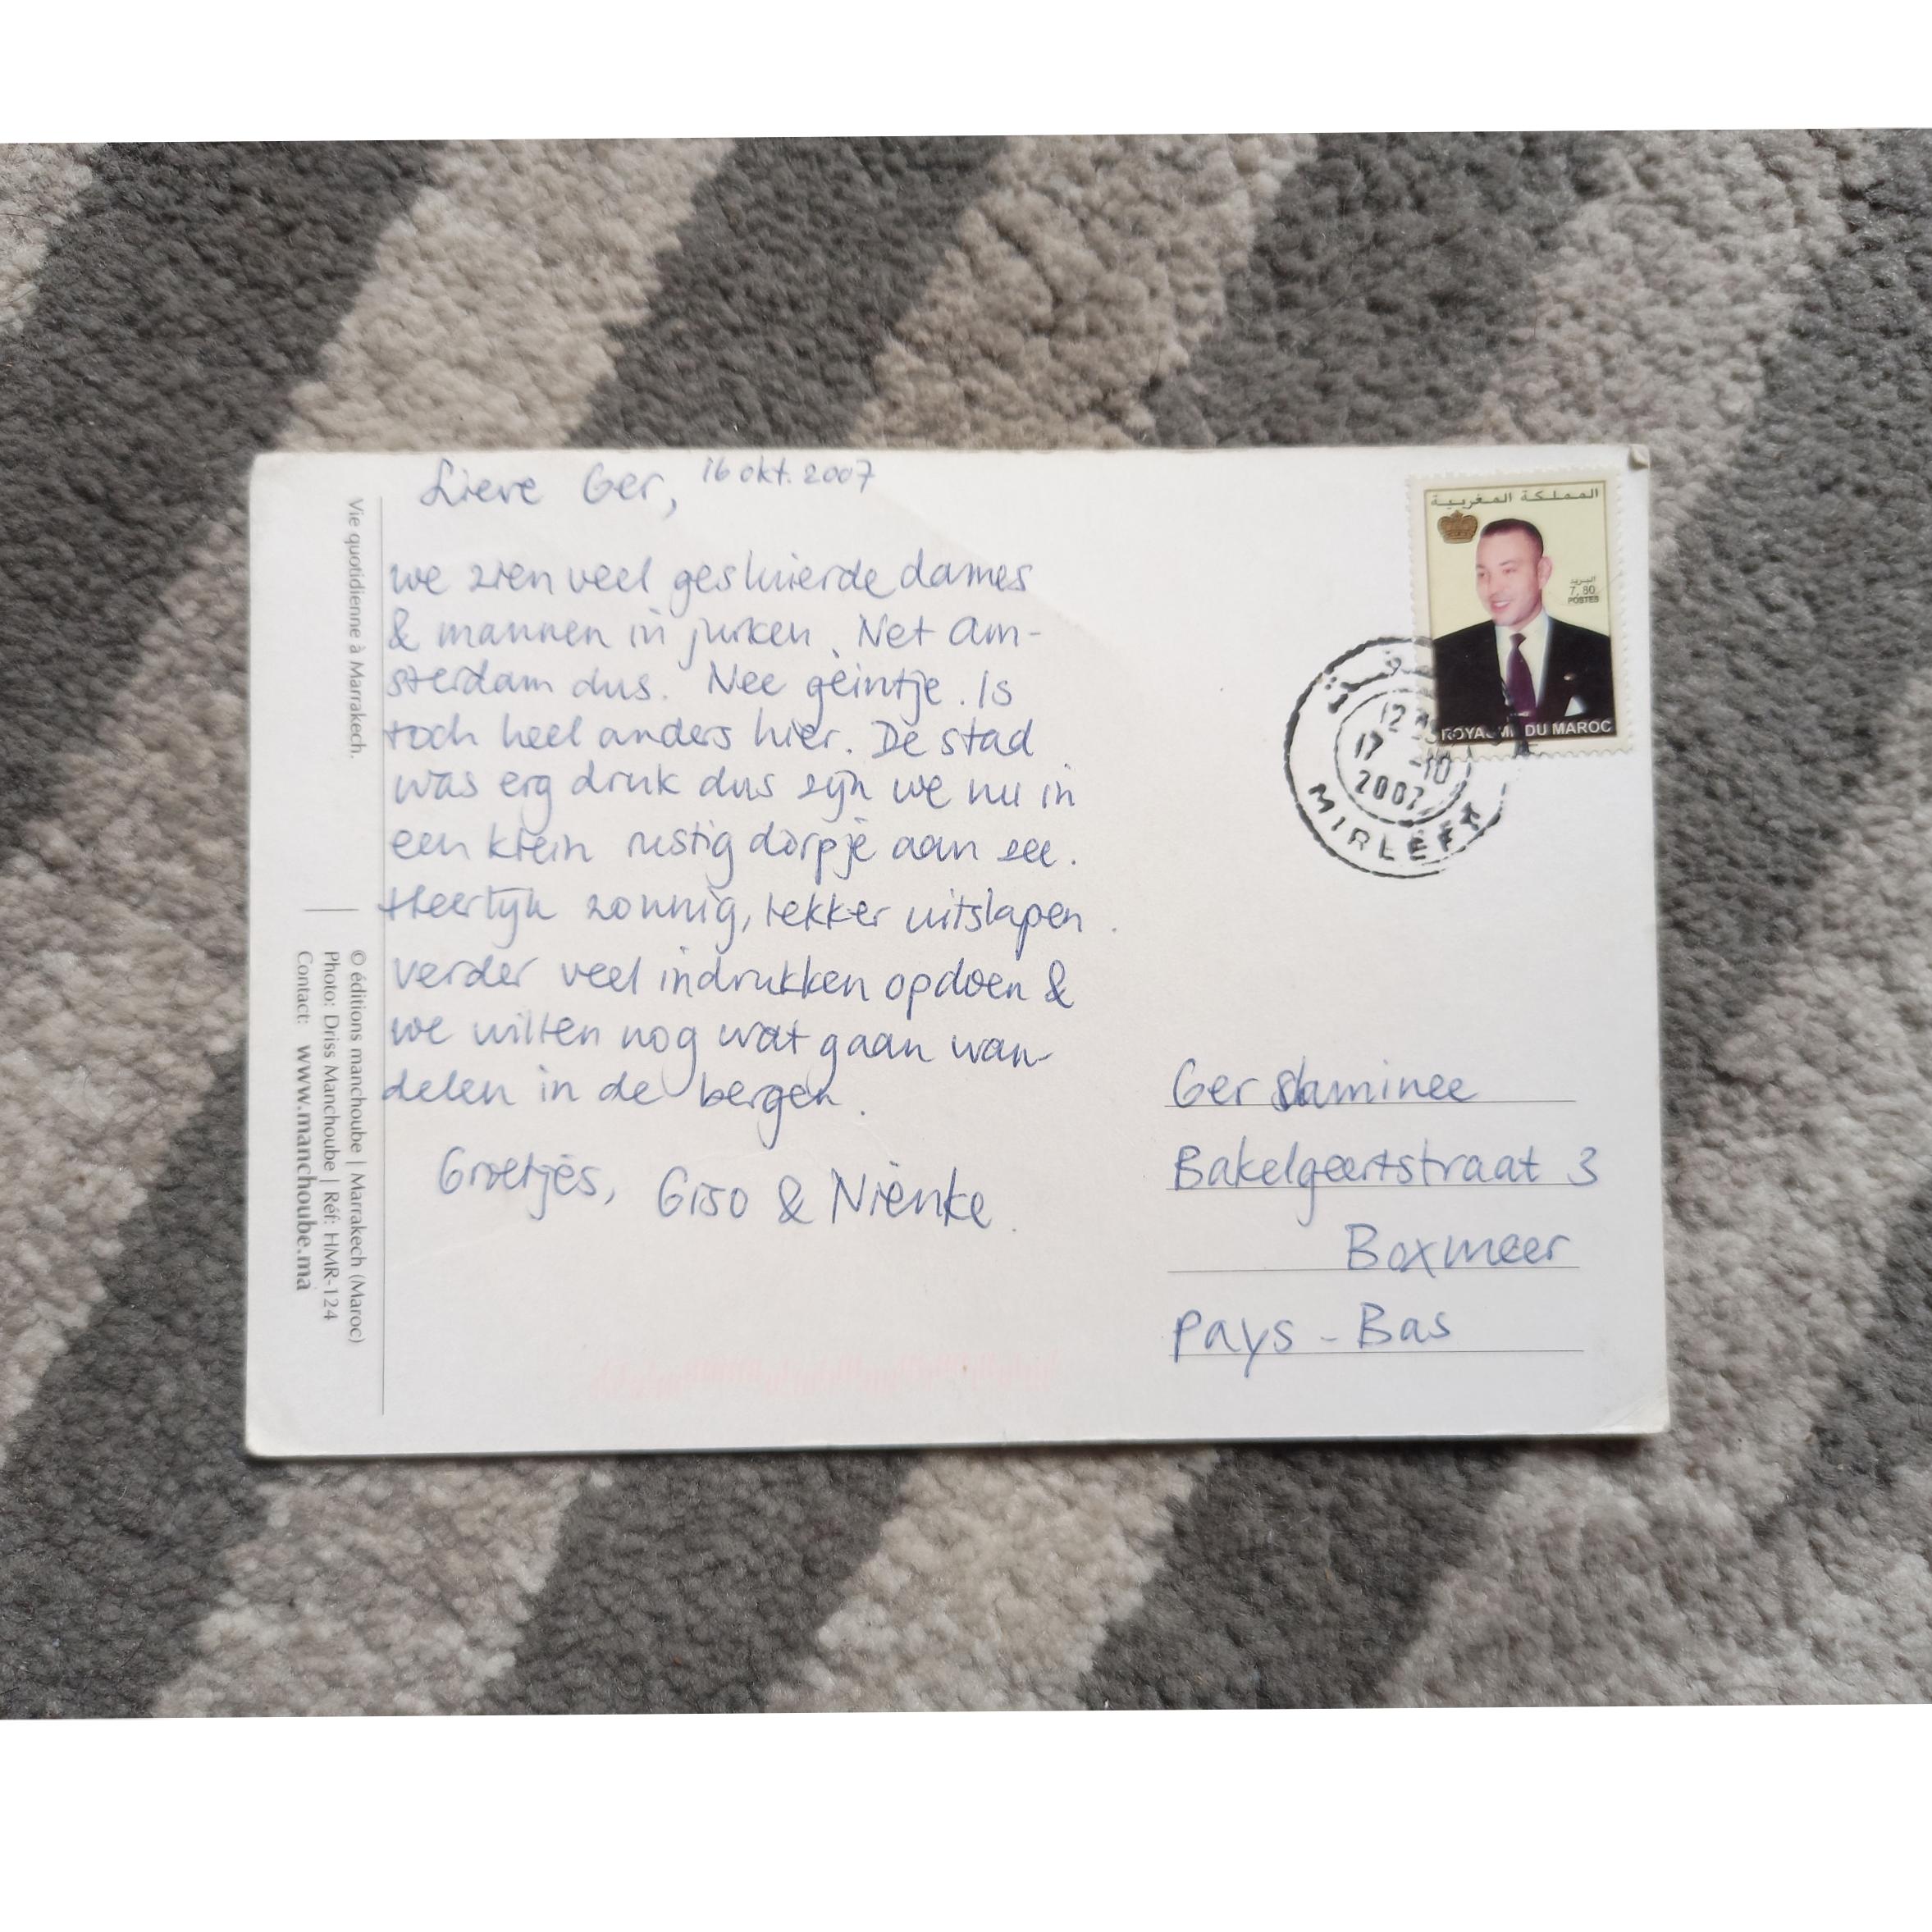 Lieve Ger, 16 okt. 2007
we zien veel gesluierde dames
& mannen in jurken. Net Am-
sterdam dus. Nee geintje. Is
toch heel anders hier. De stad
was erg druk dus zijn we nu in
een klein rustig dorpje aan zee.
Heerlijk zonnig, lekker uitslapen.
verder veel indrukken opdoen &
we willen nog wat gaan wan-
delen in de bergen.
Groetjes, Giso & Nienke.
Vie quotidienne à Marrakech.
© éditions manchoube | Marrakech (Maroc)
Photo: Driss Manchoube | Réf: HMR-124
Contact: www.manchoube.ma
المملكة المغربية
البريد
7,80
POSTES
ROYAUME DU MAROC
12
17 -10
2007
MIRLEFT
Ger
Bakelgeertstraat 3
Boxmeer
Pays-Bas